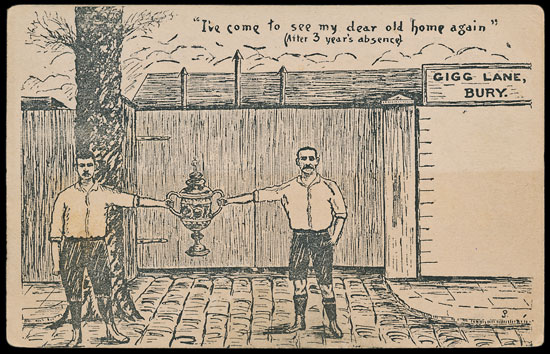 "I've come to see my dear old home again"
(After 3 year's absence)
GIGG LANE,
BURY.